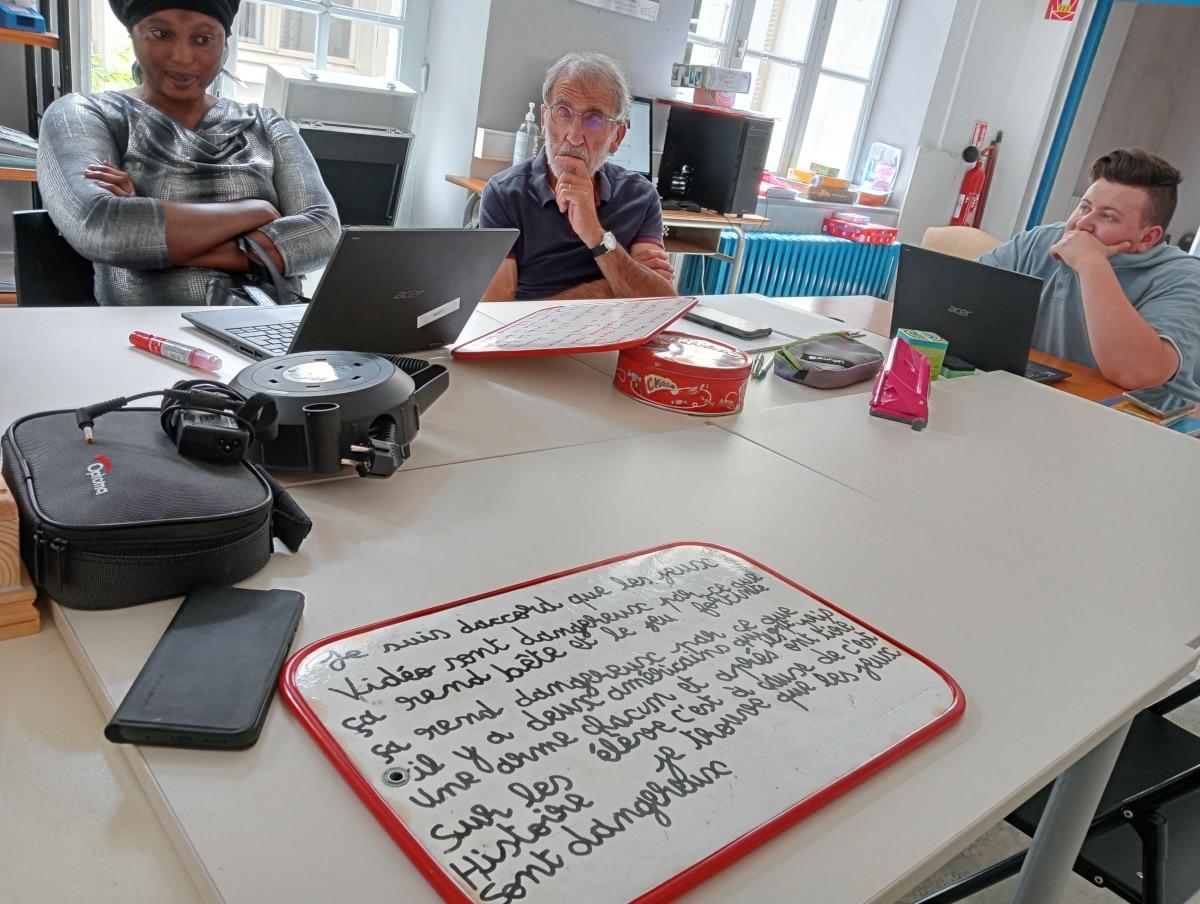 acer
acer
Optoma
Je suis daccord que les jeux
Vidéo sont dangereux par ce que
sa rend bête et le jeu fortinite
sa rend dangereux par ce que
il y a deux américains
une arme chacun et après ont tiré
Sur les élève c'est à cause de c'est
Histoire je trouve que les jeux
sont dangereux